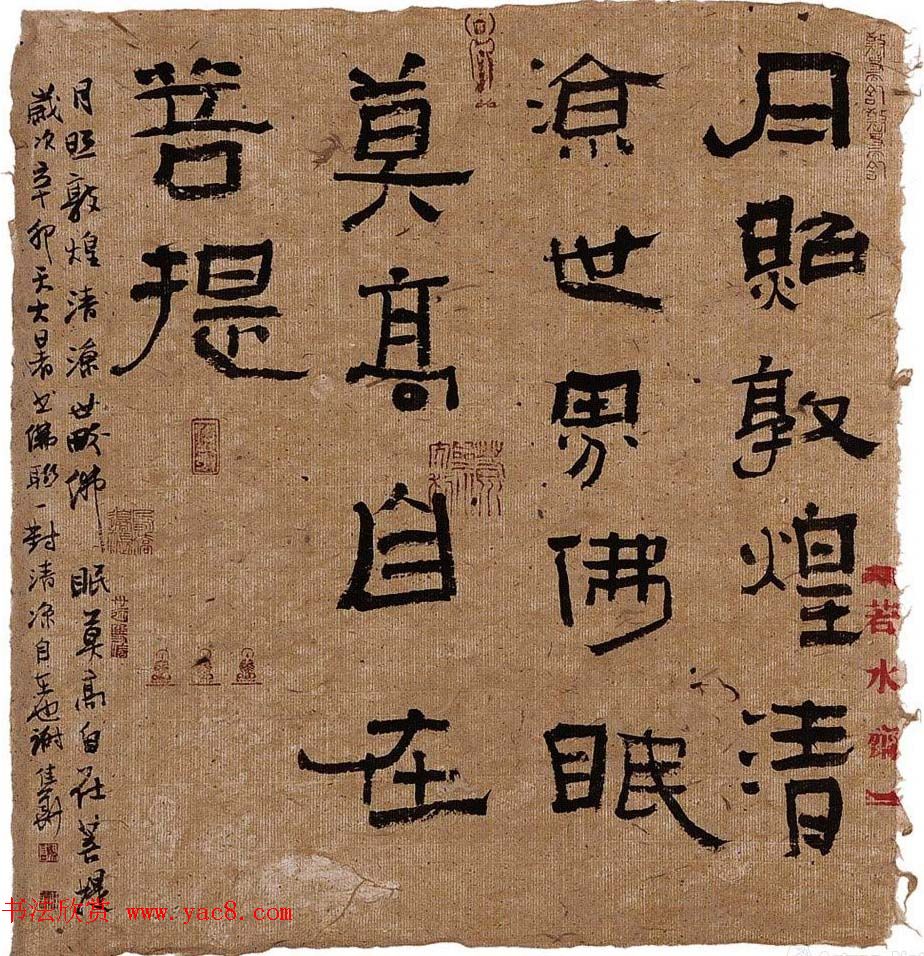 月照敦煌清
涼世界佛眠
莫高自在
菩提
月照敦煌清涼世界佛眠莫高自在菩提
歲次辛卯天大暑書佛聯一對清涼自在也謝佳華
若水齋
书法欣赏 www.yac8.com